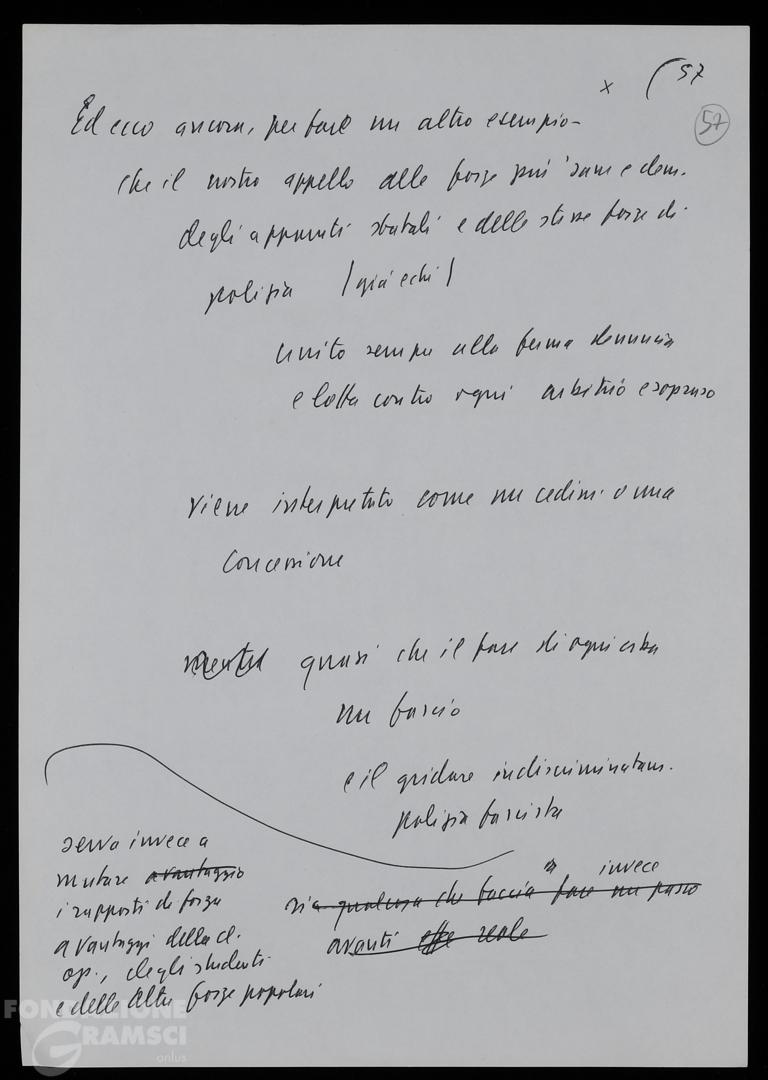 x (57
57
Ed ecco ancora, per fare un altro esempio -
che il nostro appello alle forze più sane e dem.
degli apparati statali e delle stesse forze di
polizia (già echi)
unito sempre alla ferma denuncia
e lotta contro ogni arbitrio e sopruso
viene interpretato come un cedim. o una
concessione
quasi che il fare di ogni erba
un fascio
e il gridare indiscriminatam.
polizia fascista
sia qualcosa che faccia fare invece un passo
avanti reale
serva invece a
mutare avantaggio
i rapporti di forza
a vantaggi della cl.
op., degli studenti
e delle altre forze popolari
FONDAZIONE
GRAMSCI
onlus